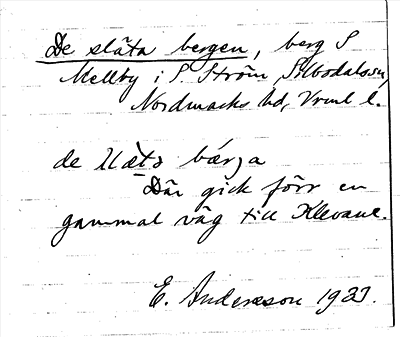 De släta bergen, berg S
Mellby i S. Ström, Silbodals sn,
Nordmarks hd, Vrml l.
de slä̀ta bärja
Där gick förr en
gammal väg till Klevane.
E. Andersson 1933.